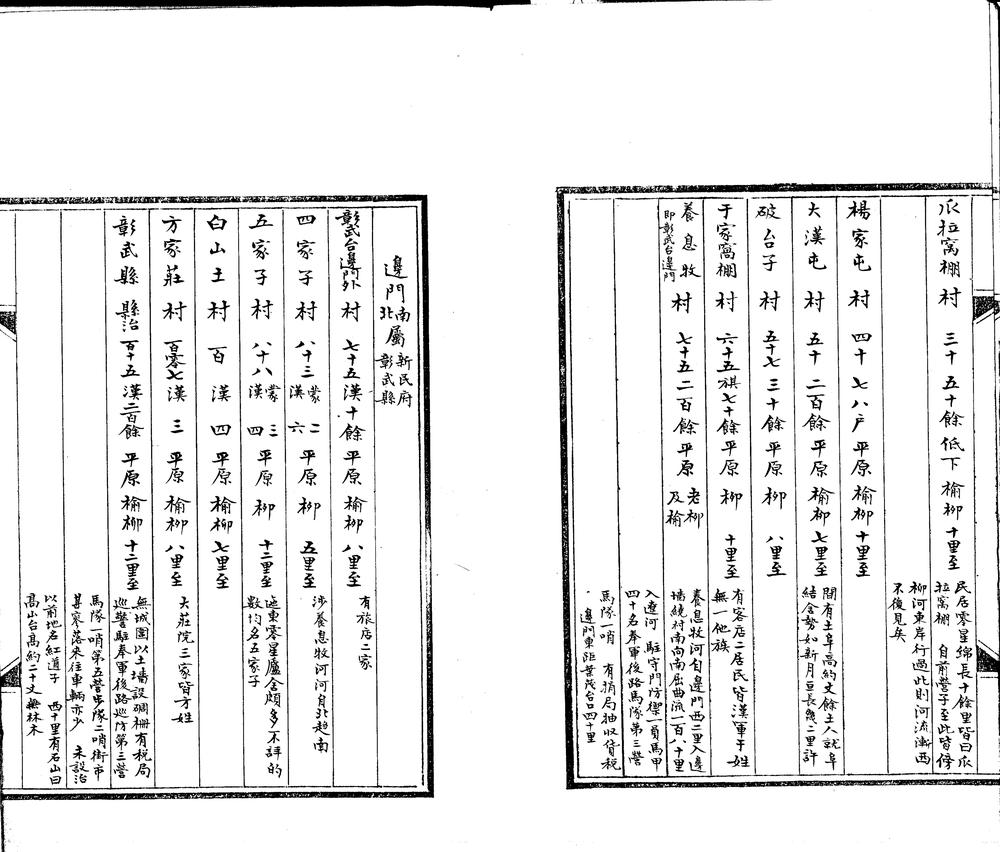 爪拉窩棚 村 三十 五十餘 低下 榆柳 十里至 民居零星綿長十餘里皆曰爪
拉窩棚 自前營子至此皆傍
柳河東岸行過此則河流漸西
不復見矣
楊家屯 村 四十 七八戶 平原 榆柳 十里至
大漢屯 村 五十 二百餘 平原 榆柳 七里至 間有土阜高約丈餘土人就阜
結舍勢如新月亘長幾二里許
破台子 村 五十七 三十餘 平原 柳 八里至
于家窩棚 村 六十五 旗七十餘 平原 柳 十里至 有客店二居民皆漢軍于姓
無一他族
養息牧 即彰武台邊門 村 七十五 二百餘 平原 老柳及榆 養息牧河自邊門西二里入邊
墻繞村南向南屈曲流一百八十里
入遼河 駐守門防禦一員馬甲
四十名奉軍後路馬隊第三營
馬隊一哨 有捐局抽收貨稅
邊門東距葉茂台口四十里
邊門南北屬新民府彰武縣
彰武台邊門外 村 七十五 漢十餘 平原 榆柳 八里至 有旅店二家
四家子 村 八十三 蒙二漢六 平原 柳 五里至 涉養息牧河河自北趨南
五家子 村 八十八 蒙三漢四 平原 柳 十二里至 迤東零星廬舍頗多不詳的
數均名五家子
白山土 村 百 漢四 平原 榆柳 七里至
方家莊 村 百零七 漢三 平原 榆柳 八里至 大莊院三家皆方姓
彰武縣 縣治 百十五 漢二百餘 平原 榆柳 十二里至 無城圍以土墻設碉柵有稅局
巡警駐奉軍後路巡防第三營
馬隊一哨第五營步隊二哨街市
甚寥落來往車輛亦少 未設治
以前地名紅道子 西十里有石山曰
高山台高約二十丈無林木